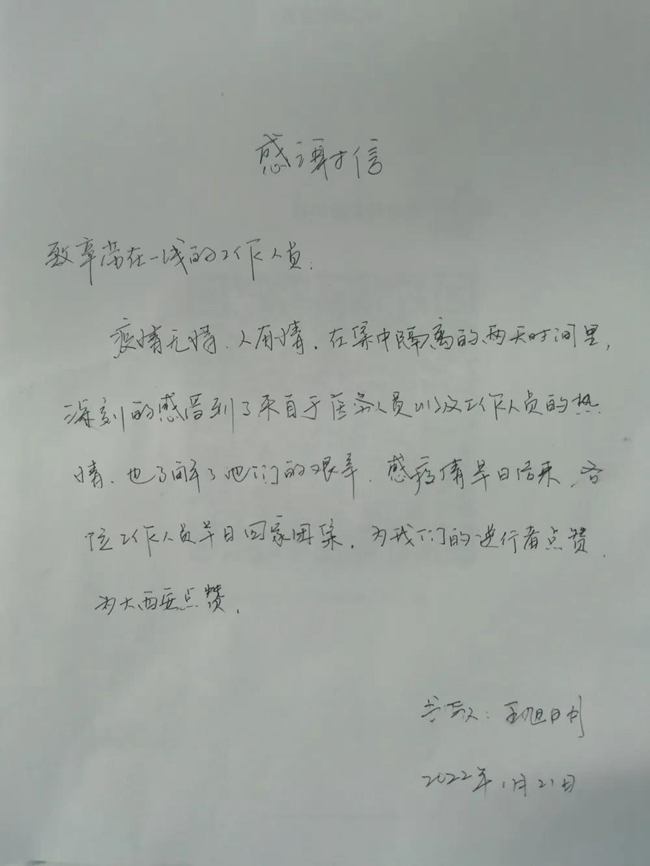 感谢信
致辛劳在一线的工作人员.
疫情无情、人有情.在集中隔离的两天时间里,
深刻的感受到了来自于医务人员以及工作人员的热
情、也了解了他们的艰辛.感疫情早日结束、各
位工作人员早日回家团聚.为我们的逆行者点赞.
为大西安点赞.
2022年1月21日